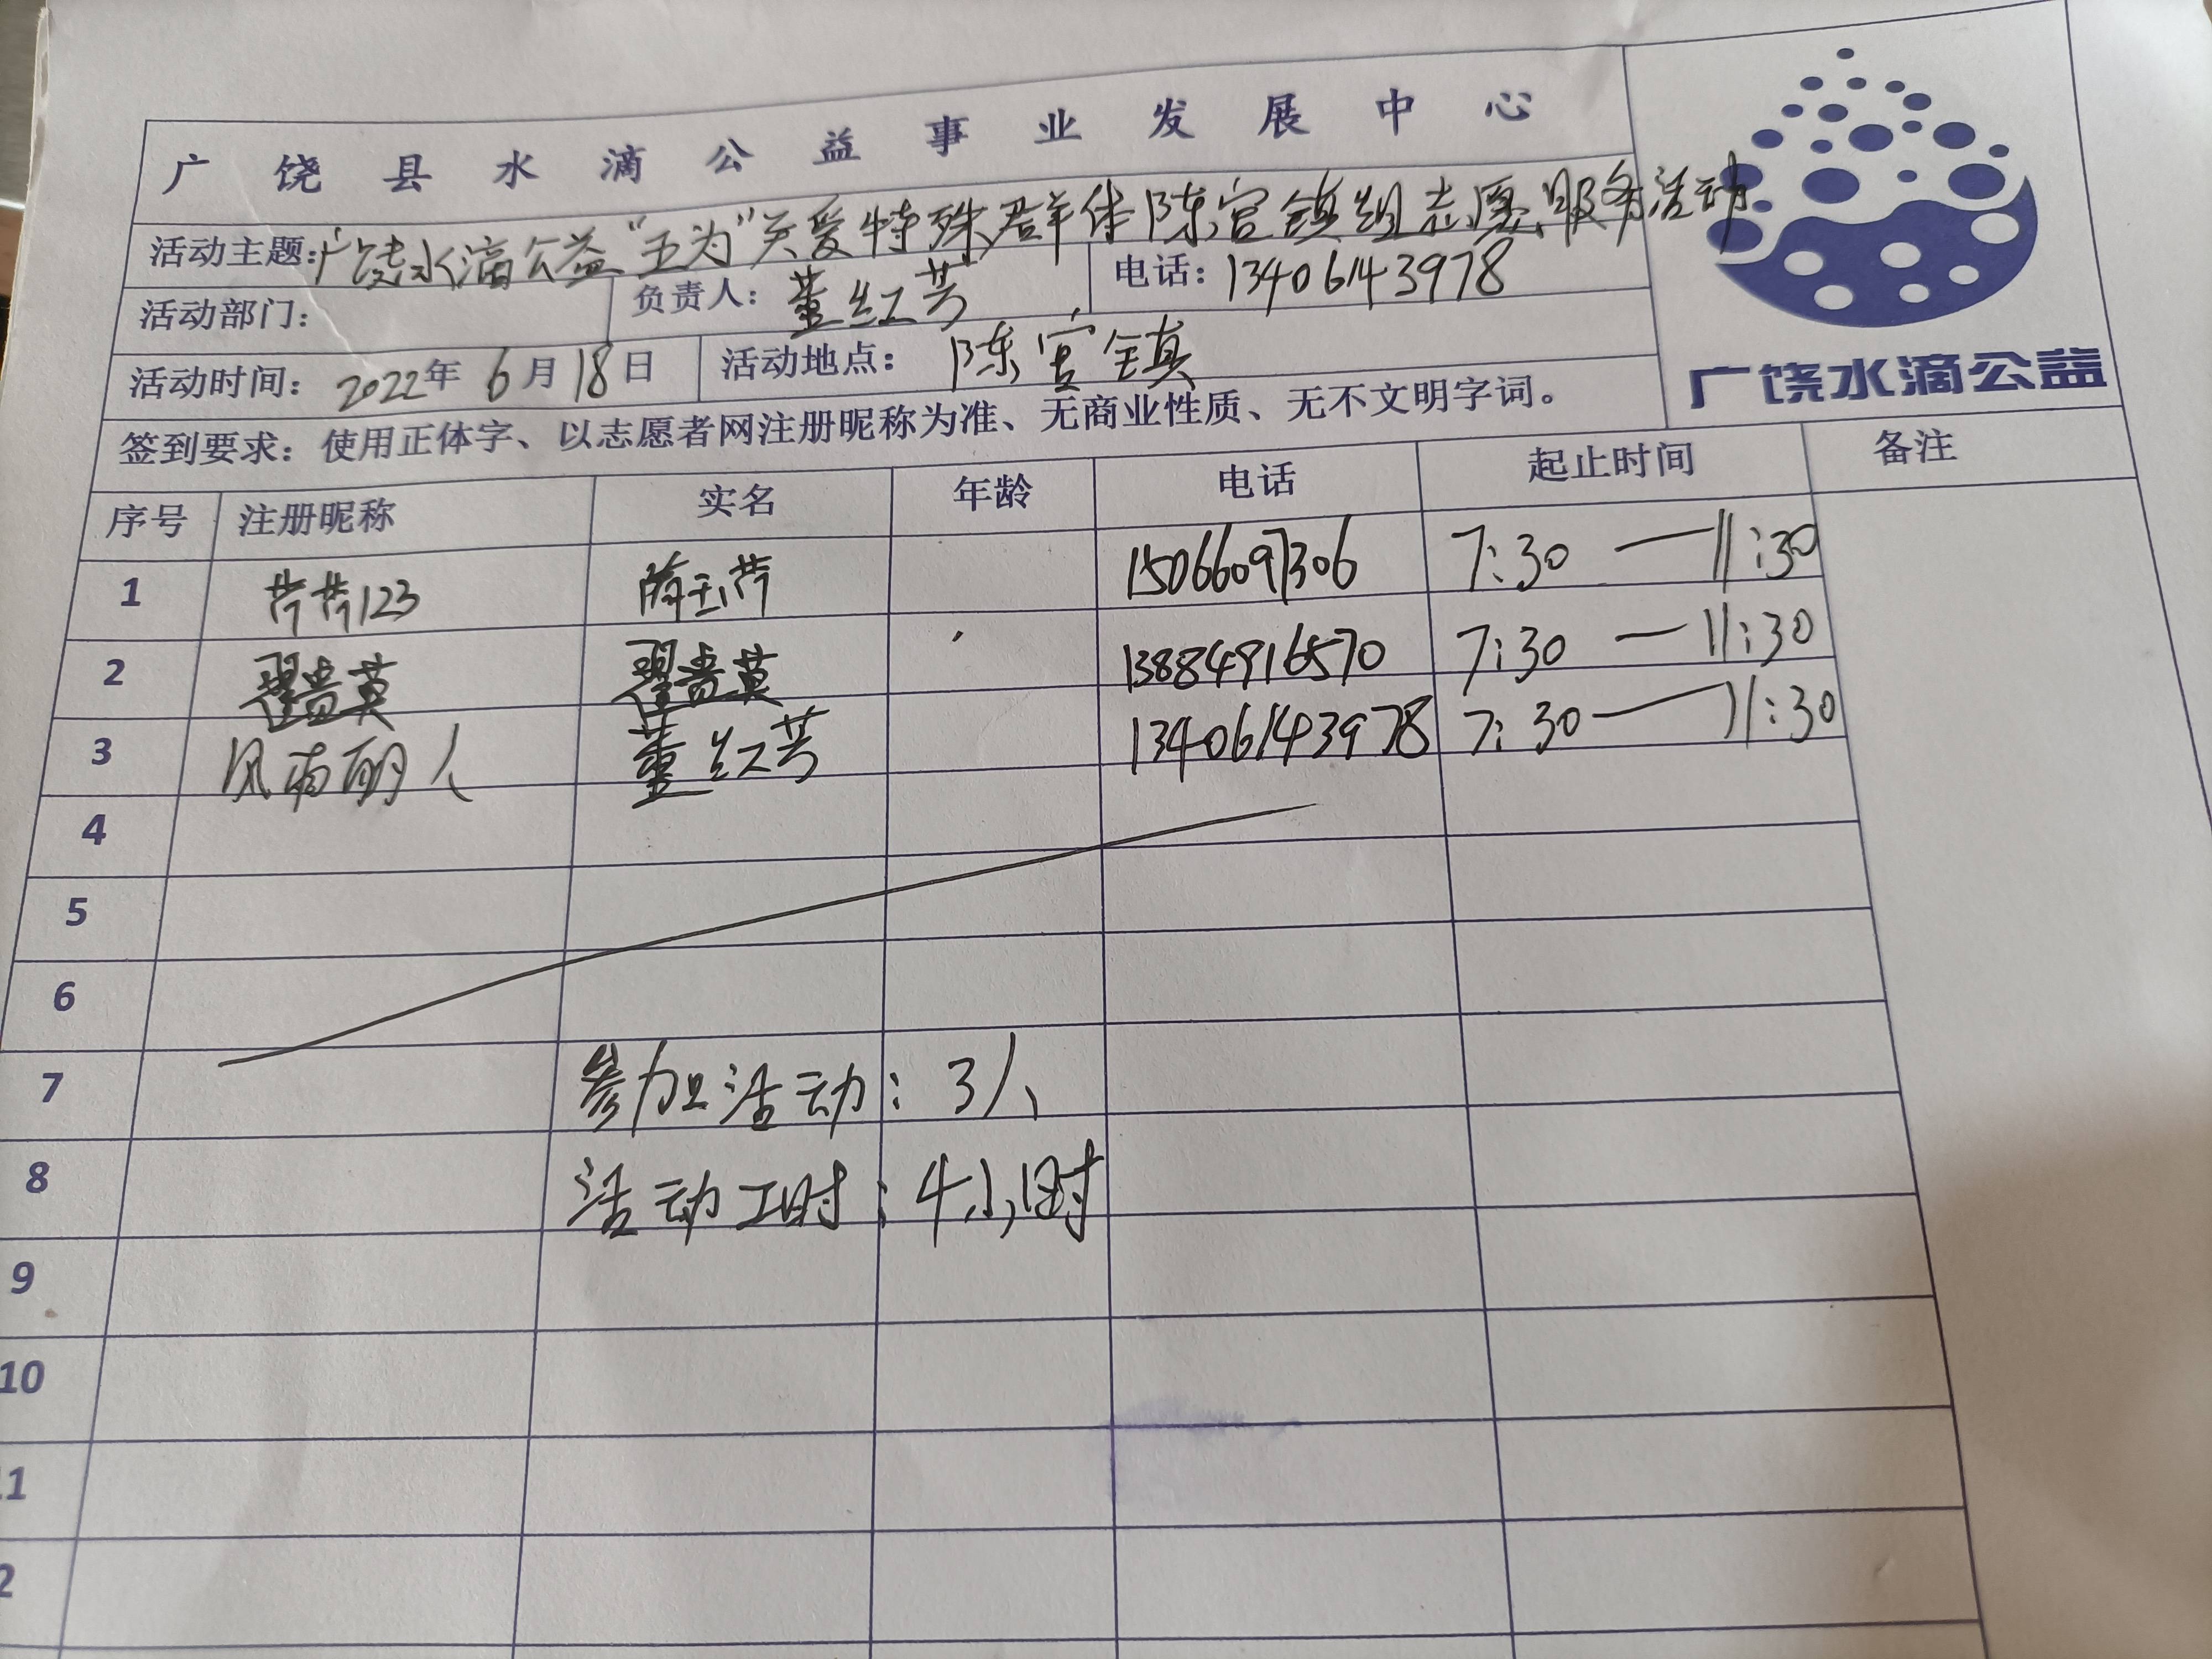 广饶县水滴公益事业发展中心
活动主题:广饶水滴公益"五为"关爱特殊群体陈官镇组志愿服务活动
活动部门: 负责人: 董红芳 电话: 13406143978
活动时间: 2022年 6月 18日 活动地点: 陈官镇
广饶水滴公益
签到要求: 使用正体字、以志愿者网注册昵称为准、无商业性质、无不文明字词。
序号 注册昵称 实名 年龄 电话 起止时间 备注
1 芹芹123 玉芹 15066097306 7:30 — 11:30
2 翟贵英 翟贵英 13884916570 7:30 — 11:30
3 风雨丽人 董红芳 13406143978 7:30 — 11:30
4
5
6
7 参加活动: 3人
8 活动工时: 4小时
9
10
11
2